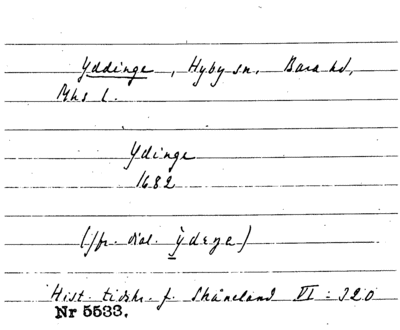 Yddinge, Hyby sn, Bara hd,
Mhs l.
Ydinge
1682
(jfr. dial. ydeŋe)
Hist. tidskr. f. Skåneland VI: 320
Nr 5533.